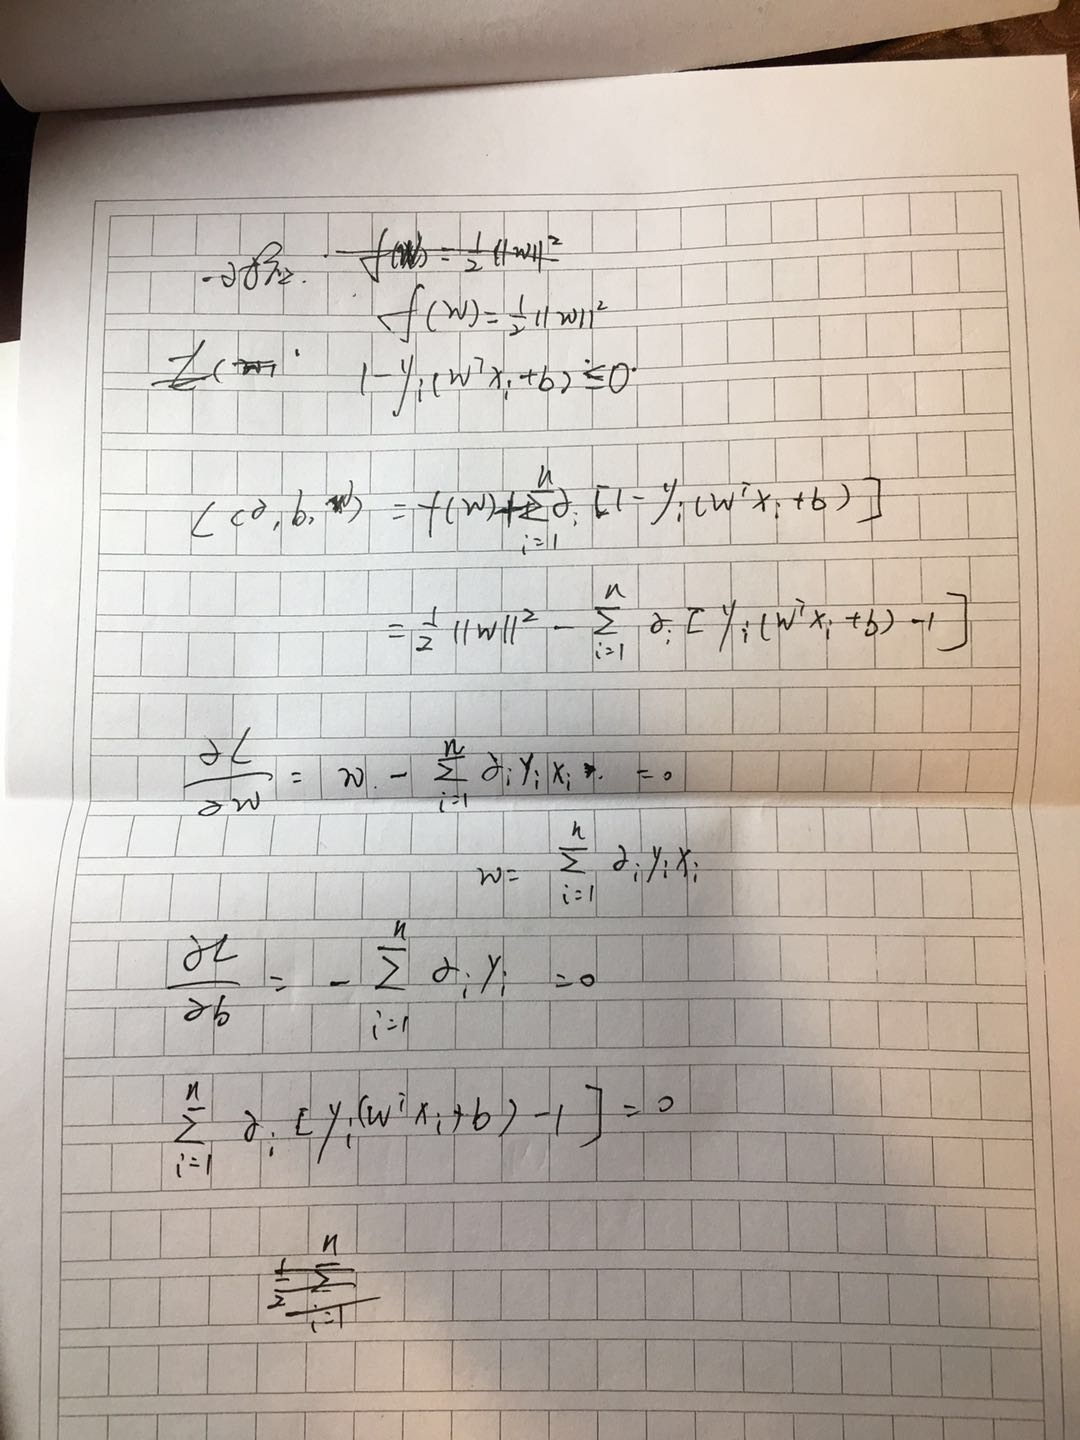 f(w) = 1/2 ||w||²
f(w) = 1/2 ||w||²
1 - yᵢ(wᵀxᵢ + b) ≤ 0
L(∂, b, w) = f(w) + Σᵢ₌₁ⁿ ∂ᵢ [1 - yᵢ(wᵀxᵢ + b)]
= 1/2 ||w||² - Σᵢ₌₁ⁿ ∂ᵢ [yᵢ(wᵀxᵢ + b) - 1]
∂L/∂w = w - Σᵢ₌₁ⁿ ∂ᵢyᵢxᵢ = 0
w = Σᵢ₌₁ⁿ ∂ᵢyᵢxᵢ
∂L/∂b = - Σᵢ₌₁ⁿ ∂ᵢyᵢ = 0
Σᵢ₌₁ⁿ ∂ᵢ [yᵢ(wᵀxᵢ + b) - 1] = 0
1/2 Σᵢ₌₁ⁿ